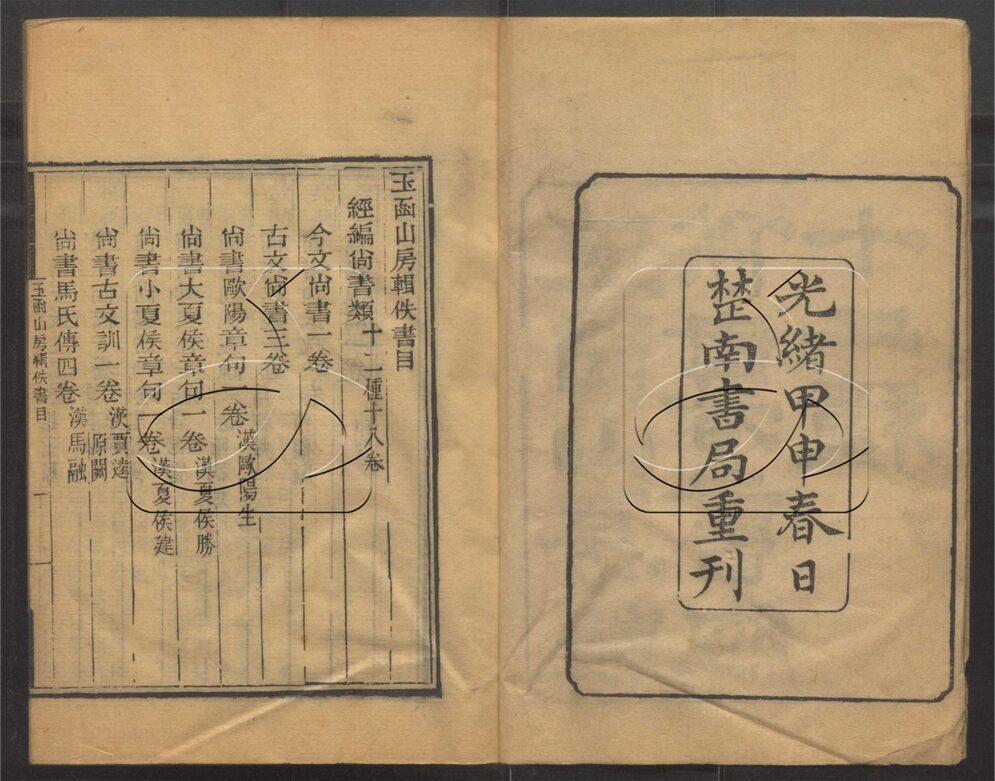 光緒甲申春日
楚南書局重刊
玉函山房輯佚書目
經編尙書類十二種十八卷
今文尙書一卷
古文尙書三卷
尙書歐陽章句一卷漢歐陽生
尙書大夏侯章句一卷漢夏侯勝
尙書小夏侯章句一卷漢夏侯建
尙書古文訓一卷漢賈逵原闕
尙書馬氏傳四卷漢馬融
玉函山房輯佚書目 一